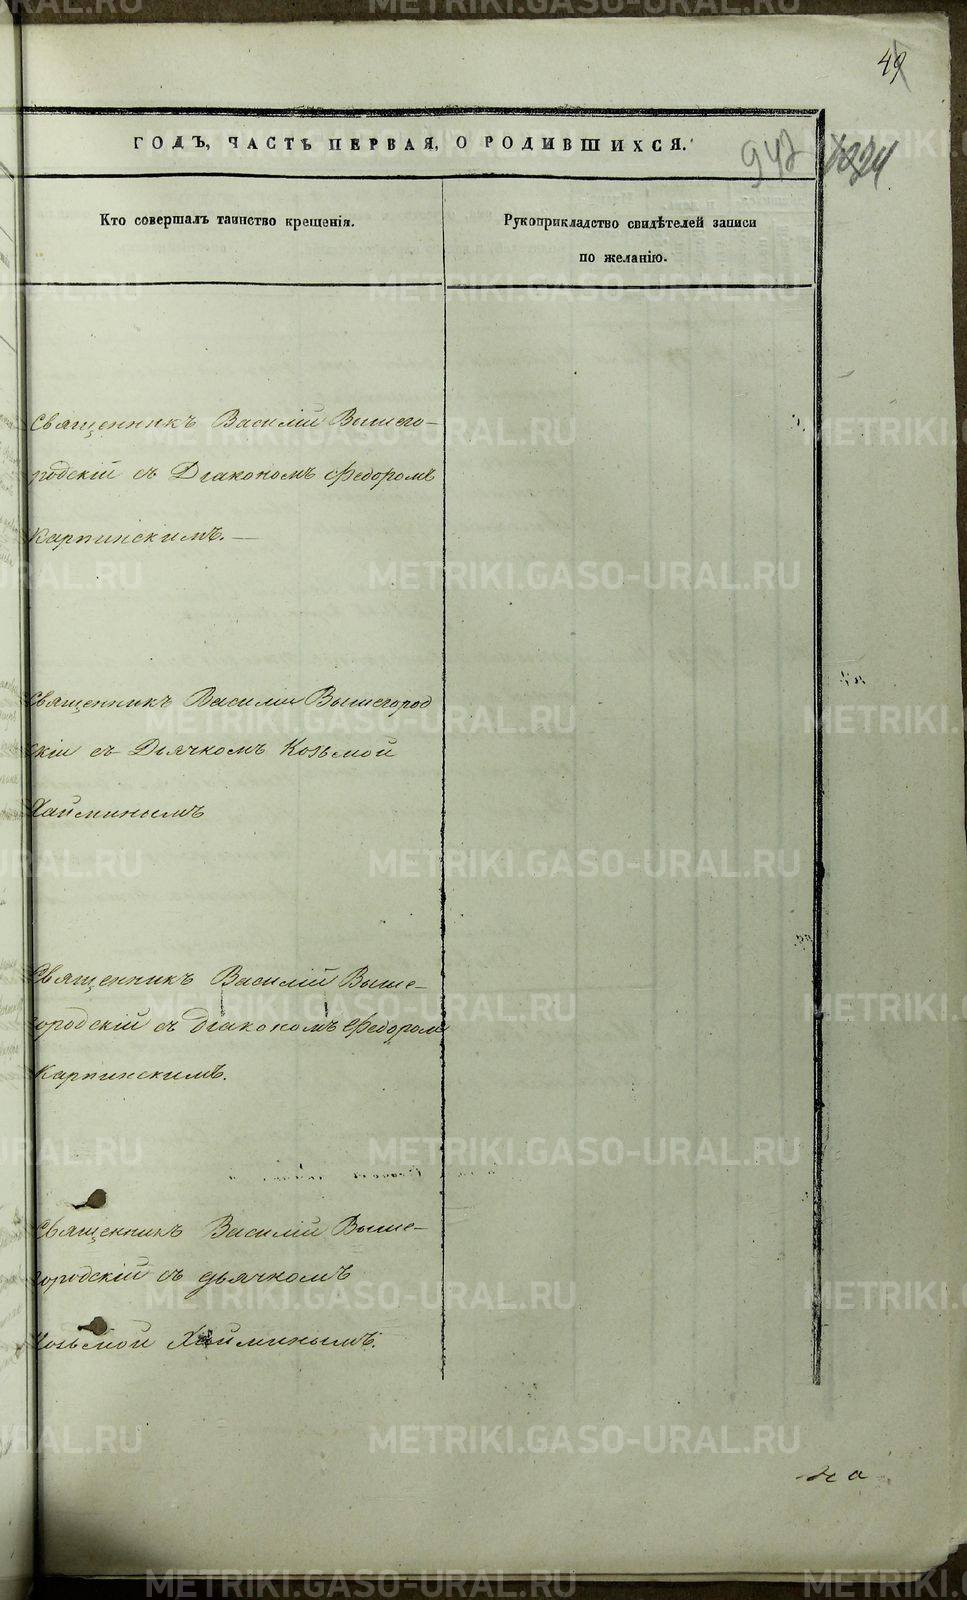 49
ГОДЪ, ЧАСТЬ ПЕРВАЯ, О РОДИВШИХСЯ.
942 1024
Кто совершалъ таинство крещенія.
Рукоприкладство свидѣтелей записи
по желанію.
Священникъ Василій Вышего-
родскій съ Діакономъ Федоромъ
Карпинскимъ.—
Священникъ Василій Вышегород
скій съ Дьячкомъ Козьмой
Хайминымъ
Священникъ Василій Выше-
городскій съ діакономъ Федоромъ
Карпинскимъ.
Священникъ Василій Выше-
городскій съ дьячкомъ
Козьмой Хайминымъ.
METRIKI.GASO-URAL.RU